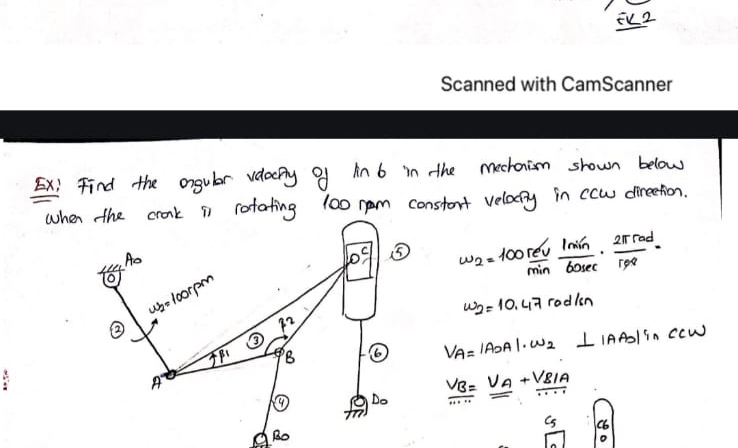 Ex 2
Scanned with CamScanner
Ex: Find the angular velocity of link 6 in the mechanism shown below
when the crank is rotating 100 rpm constant velocity in ccw direction.
Ao
ω2=100rpm
2
A
β1
3
β2
B
4
Bo
C
5
6
Do
ω2 = 100 rev/min 1min/60sec . 2π rad/rev .
ω2 = 10.47 rad/sn
VA = |AoA|.ω2 ⊥ |AAo| in ccw
VB = VA + VB/A
C5
C6